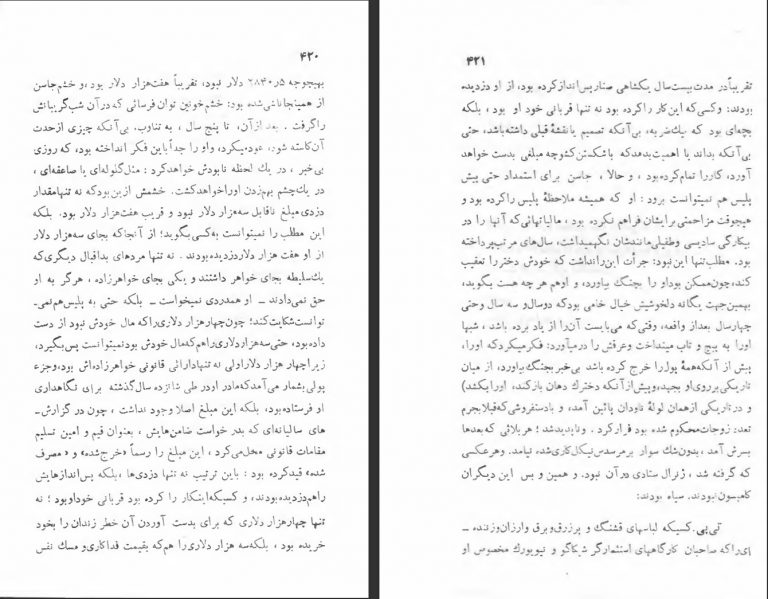 ۴۲۰
بهیچوجه ۲۸۴۰ر۵ دلار نبود، تقریباً هفت‌هزار دلار بود، و خشم جاسن
از همینجا ناشی شده بود: خشم خونین توان فرسائی که در آن شب گریبانش
را گرفت . بعد از آن، تا پنج سال ، به تناوب، بی‌آنکه چیزی از حدت
آن کاسته شود، عود میکرد، و او را جداً باین فکر انداخته بود، که روزی
بی‌خبر ، در یك لحظه نابودش خواهد کرد : مثل گلوله‌ای یا صاعقه‌ای ،
در یك‌چشم بهم‌زدن او را خواهد کشت. خشمش از این بود که نه تنها مقدار
دزدی مبلغ ناقابل سه‌هزار دلار نبود و قریب هفت‌هزار دلار بود، بلکه
این مطلب را نمیتوانست به کسی بگوید؛ از آنجا که بجای سه‌هزار دلار
از او هفت هزار دلار دزدیده بودند . نه تنها مردهای بداقبال دیگری که
یك سلیطه بجای خواهر داشتند و یکی بجای خواهرزاده ، هرگز به او
حق نمی‌دادند ــ او همدردی نمیخواست ــ بلکه حتی به پلیس هم نمی‌ـ
توانست شکایت کند؛ چون چهار هزار دلاری را که مال خودش نبود از دست
داده بود، حتی سه هزار دلاری را هم که مال خودش بود نمیتوانست پس بگیرد،
زیرا چهار هزار دلار اولی نه تنها دارائی قانونی خواهرزاده‌اش بود، و جزء
پولی بشمار می‌آمد که مادر او در طی شانزده سال گذشته برای نگاهداری
او فرستاده بود، بلکه این مبلغ اصلا وجود نداشت ، چون در گزارش‌ـ
های سالیانه‌ای که بدر خواست ضامن‌هایش ، بعنوان قیم و امین تسلیم
مقامات قانونی محل می‌کرد ، این مبلغ را رسماً «خرج‌شده» و «مصرف
شده» قید کرده بود : باین ترتیب نه تنها دزدی‌ها، بلکه پس‌اندازهایش
را هم دزدیده بودند، و کسیکه اینکار را کرده بود قربانی خود او بود ؛ نه
تنها چهار هزار دلاری که برای بدست آوردن آن خطر زندان را بخود
خریده بود ، بلکه سه هزار دلاری را هم که بقیمت فداکاری و مسك نفس
۴۲۱
تقریباً در مدت بیست‌سال یکشاهی صنار پس‌انداز کرده بود، از او دزدیده
بودند: و کسی که این کار را کرده بود نه تنها قربانی خود او بود ، بلکه
بچه‌ای بود که بیك ضربه، بی‌آنکه تصمیم یا نقشهٔ قبلی داشته باشد، حتی
بی‌آنکه بداند یا اهمیت بدهد که با شکستن کشو چه مبلغی بدست خواهد
آورد، کار را تمام کرده بود ، و حالا ، جاسن برای استمداد حتی پیش
پلیس هم نمیتوانست برود : او که همیشه ملاحظهٔ پلیس را کرده بود و
هیچوقت مزاحمتی برایشان فراهم نکرده بود ، مالیاتهائی که آنها را در
بیکارگی سادیسی و طفیلی مانندشان نگهمیداشت، سال‌های مرتب پرداخته
بود. مطلب تنها این نبود: جرأت این را نداشت که خودش دختر را تعقیب
کند، چون ممکن بود او را بچنگ بیاورد، و او هم هر چه هست بگوید،
بهمین‌جهت یگانه دلخوشیش خیال خامی بود که دو سال و سه سال و حتی
چهار سال بعد از واقعه، وقتی که می‌بایست آن را از یاد برده باشد ، شبها
او را به پیچ و تاب مینداخت و عرقش را درمیآورد: فکر میکرد که او را،
پیش از آنکه همهٔ پول را خرج کرده باشد بی‌خبر بچنگ بیاورد، از میان
تاریکی بر روی او بجهد، و پیش از آنکه دخترك دهان باز کند، او را بکشد)
و در تاریکی از همان لولهٔ ناودان پائین آمد، و با دستفروشی که قبلا بجرم
تعدد زوجات محکوم شده بود فرار کرد . و ناپدید شد ؛ هر بلائی که بعدها
بسرش آمد ، بدون شك سوار بر مرسدس نیکل‌کاری‌شده نیامد. و هر عکسی
که گرفته شد ، ژنرال ستادی در آن نبود. و همین و بس این دیگران
کامپسون نبودند. سیاه بودند:
تی‌پی. کسیکه لباسهای قشنگ و پرزرق‌وبرق و ارزان و زننده ــ
ای را که صاحبان کارگاههای استثمارگر شیکاگو و نیویورك مخصوص او